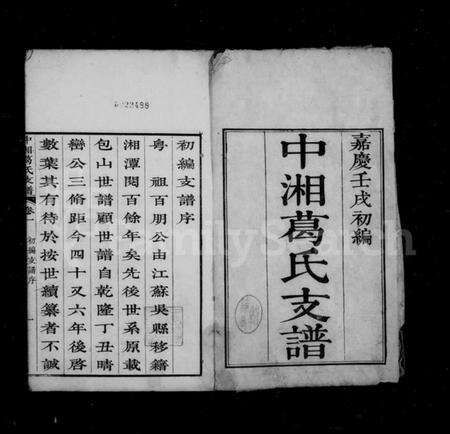 嘉慶壬戌初編
中湘葛氏支譜
初編支譜序
粵 祖百朋公由江蘇吳縣移籍
湘潭閱百餘年矣先後世系原載
包山世譜顧世譜自乾隆丁丑晴
巒公三修距今四十又六年後啓
數葉其有待於按世續纂者不誠
中湘葛氏支譜 卷一 初編支譜序
FamilySearch